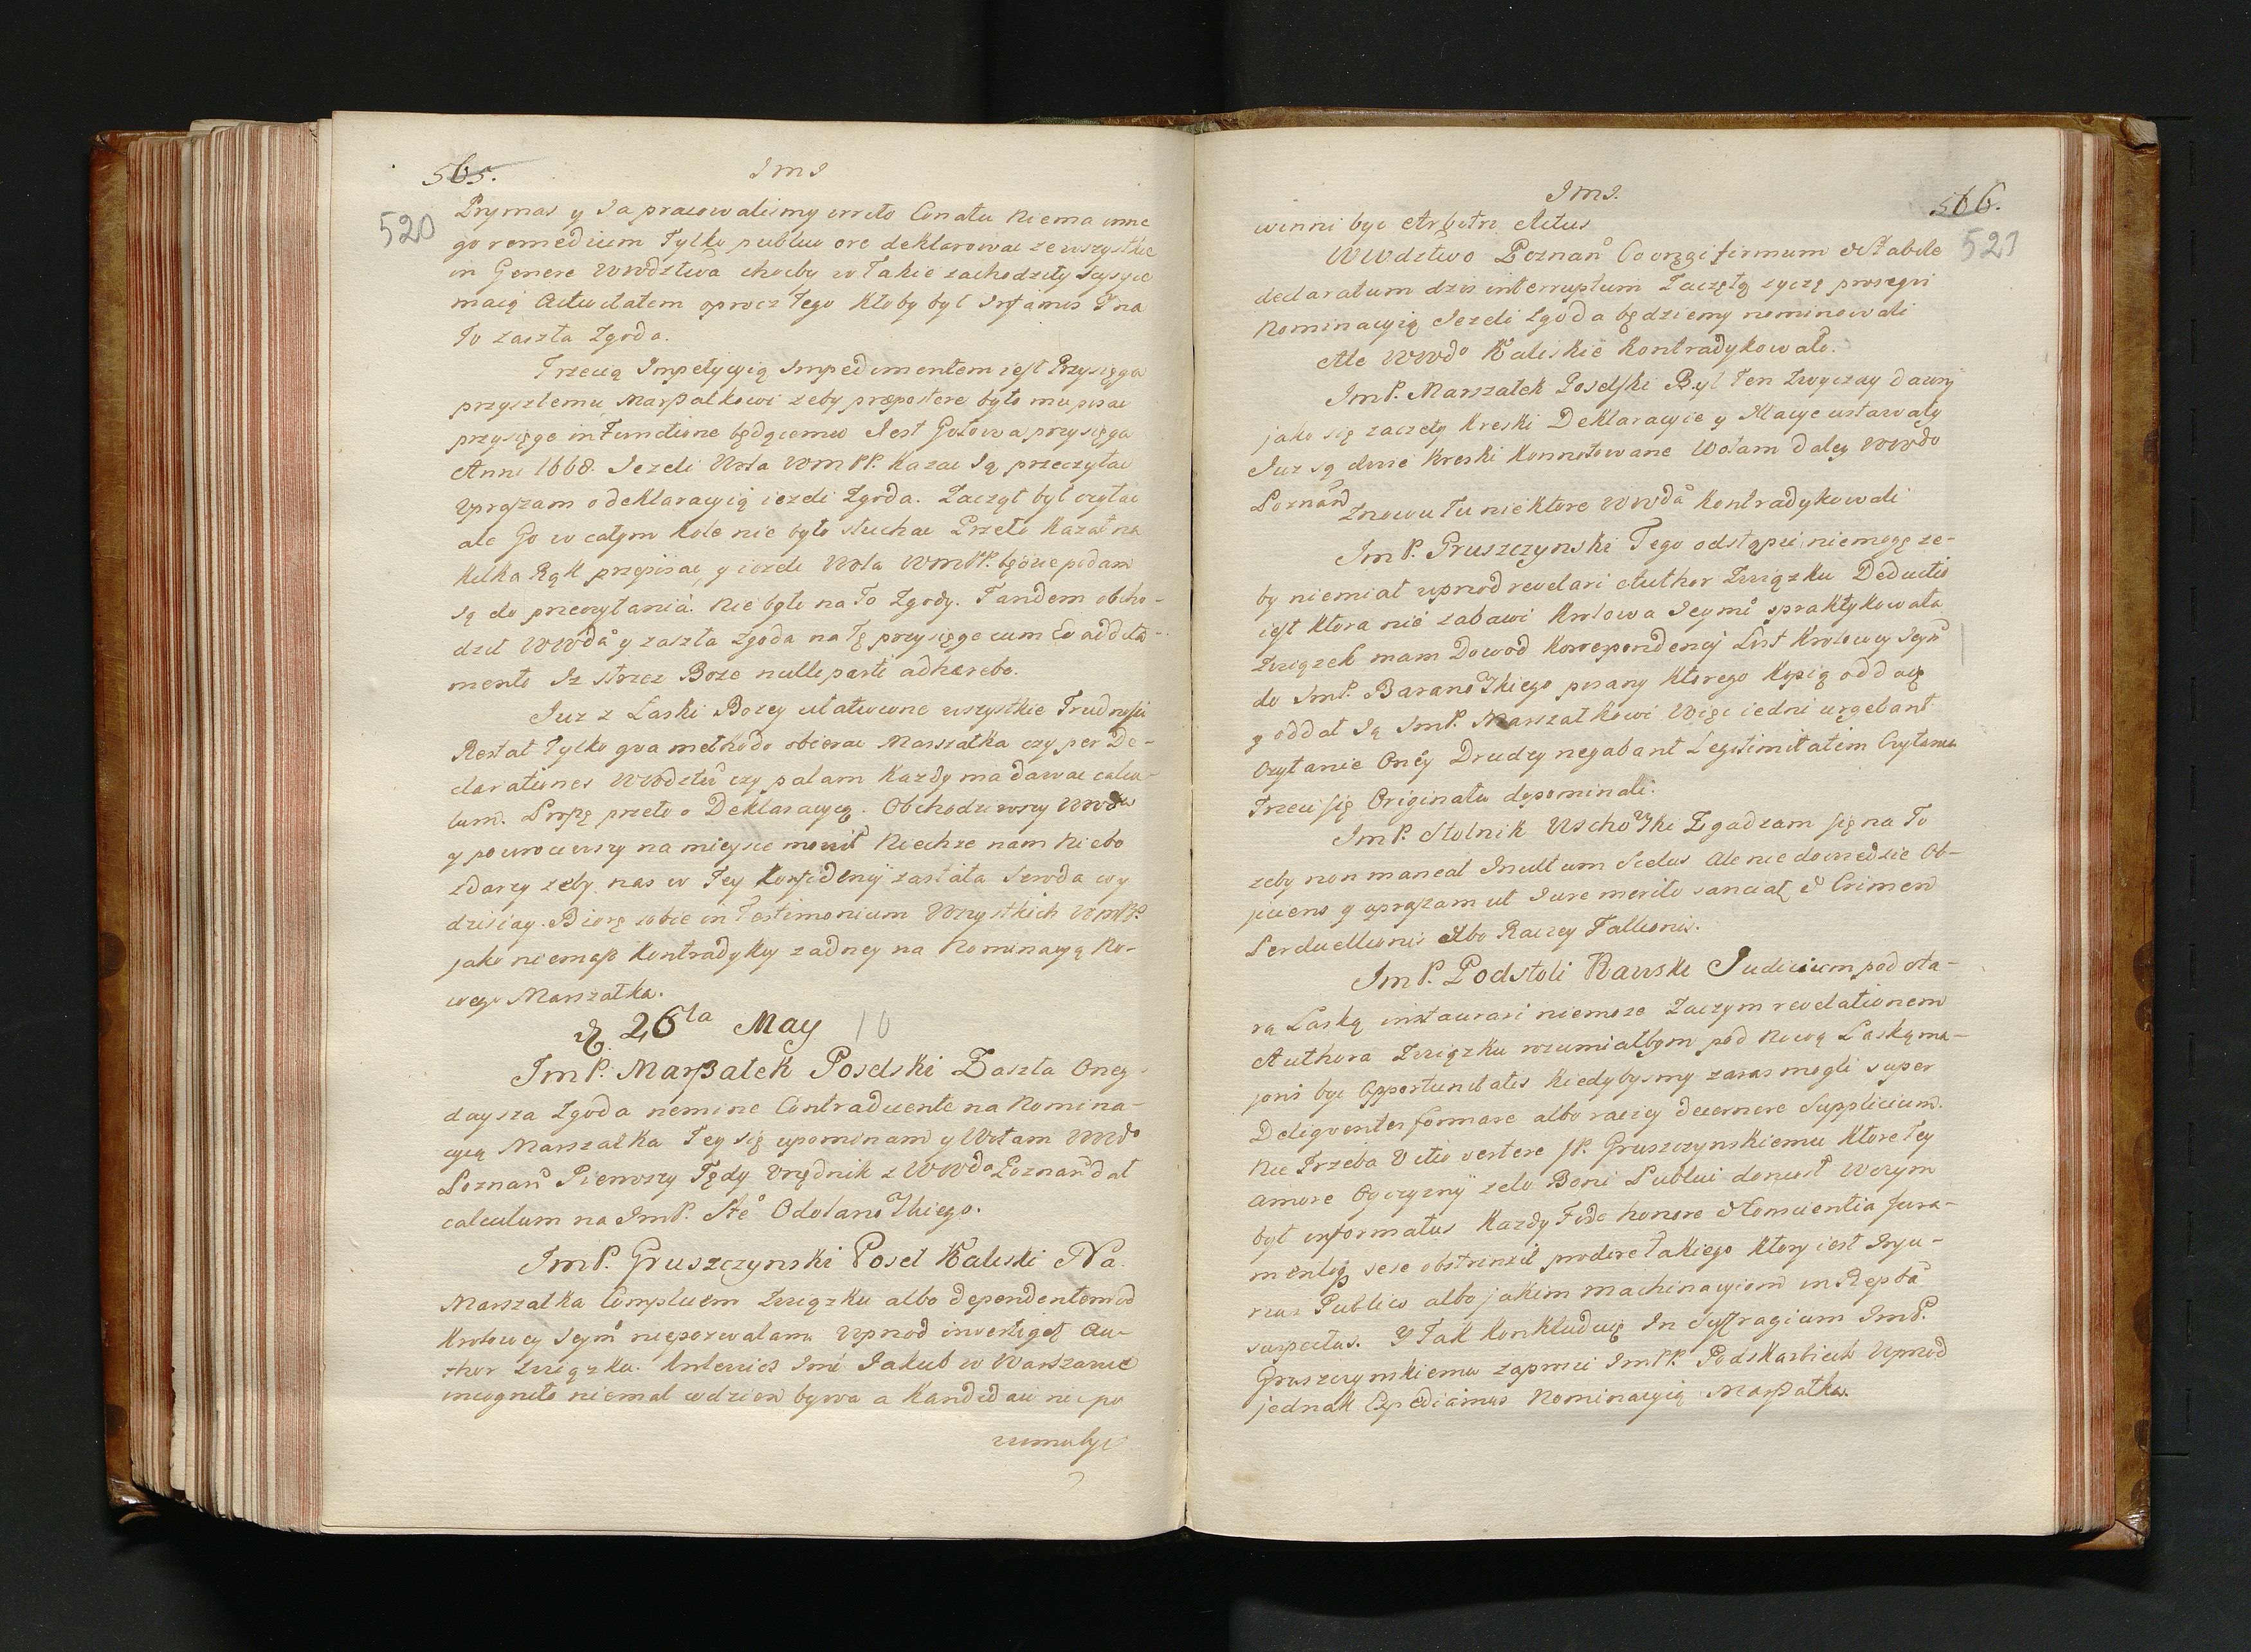 565.
520
Prymas y Ja pracowalismy wreto Conatu Niema inne
go remedium Tylko publico ore deklarowac ze wszystkie
in Genere WWdztwa chocby w Takie zachodzily
maią Activitatem oprocz Tego Ktoby byl Infamis Y na
To zaszla Zgoda.
Trzecią Impetycyią Impedimentem iest Przysięga
przyszlemu Marszalkowi zeby præpostere bylo mu pisac
przysięge in Functione będącemu Jest Gotowa przysięga
Anni 1668. Jezeli Wola WmPP. Kazac Ją przeczytac
upraszam o deklaracyią iezeli Zgoda. Zacząl byl czytac
ale Go w calym Kole nie bylo sluchac Przeto Kazal na
kilka Rąk przepisac, y iezeli Wola WmPP. będzie podam
Ją do przeczytania. Nie bylo na To Zgody. Tandem obcho-
dzil WWda y zaszla Zgoda na Tę przysięge cum Eo addita-
mento Iz strzez Boze nulli parti adhærebo.
Juz z Laski Bozey ulatwione wszystkie Trudnosci
Restat Tylko qva methodo obierac Marszalka czy per De-
clarationes WWdztw czy palam Kazdy ma dawac calcu-
lum. Proszę przeto o Deklaracyą. Obchodziwszy WWdw
y powrociwszy na mieysce mowil Niechze nam Niebo
zdarzy zeby nas w Tey Konfidency zastala Szroda czy
dzisiay. Biorę sobie in Testimonium Wszystkich WmPP.
jako niemasz Kontradykcy zadney na Nominacyą No-
wego Marszalka.
d. 26ta May 10
JmP. Marszalek Poselski Zaszla Oney-
daysza Zgoda nemine Contradicente na Nomina-
cyią Marszalka Tey się upominam y Wolam WWdo
Poznan Pierwszy Tedy Urzędnik z WWda Poznan dal
calculum na JmP. Ste Odolanowskiego.
JmP. Gruszczynski Posel Kaliski Na
Marszalka Complicem Związku albo dependentem od
Krolowey Jeym niepozwalam Wprzod investiget Au-
thor Związku. Krolewicz Jmc Jakub w Warszawie
incognito niemal codzien bywa a Kandidaci nie po
winni byc
Jms.
566.
521
winni byc Arbitri Actus
WWdztwo Poznan Co wczoraj firmum & Stabile
declaratum dzis interruptum Zaczętą zyczę proseqvi
Nominacyią Jezeli Zgoda będziemy nominowali
Ale WWdo Kaliskie Kontradykowalo.
JmP. Marszalek Poselski Byl Ten Zwyczay dawny
jako się zaczely Kreski Deklaracyie y Racye ustawaly
Juz są dwie Kreski Konnotowane Wolam daley WWdo
Poznan
Znowu Tu niektore WWda Kontradykowali
JmP. Gruszczynski Tego odstąpic niemogę ze-
by niemial wprzod revelari Author Związku Deductio
iest ktora nie zabawi Krolowa Jeymc praktykowala
Związek mam Dowod Korrepondency List Krolowey Jeym
do JmP. Baranowskiego pisany Ktorego Kopią oddaię
y oddal Ją JmP. Marszalkowi Więc iedni urgebant
Czytanie Oney Drudzy negabant Legitimitatem Czytania
Trzeci się Originalu dopominali.
JmP. Stolnik Wschowski Zgadzam się na To
zeby non maneat Inultum Scelus Ale nie dowiedzie Ob-
jiciens y upraszam ut Jure merito sanciat & Crimen
Perduellionis Albo Raczey Tallionis.
JmP. Podstoli Rawski Judicium pod sta-
rą Laską instaurari niemoze Zaczym revelationem
Authora Związku rozumialbym pod Nową Laską ma-
joris byc Opportunitatis Kiedybysmy zaraz mogli super
Deliqventes formare albo raczey decernere Supplicium.
Nie Trzeba Vitio vertere JP. Gruszczynskiemu Ktore Tey
amore Oyczyzny zelo Boni Publici donosi Wczym
byl informatus Kazdy Fide honore & Consientia Jura-
mentoq sese obstrinxit prodere Takiego Ktory iest Inju-
rius Publico albo jakim machinacyiom in Repba
suspectus. Y Tak Konkluduię In Suffragium JmP.
Gruszczynskiemu zapomci JmPP. Podskarbich Wprzod
jednak Expediamus Nominacyią Marszalka.